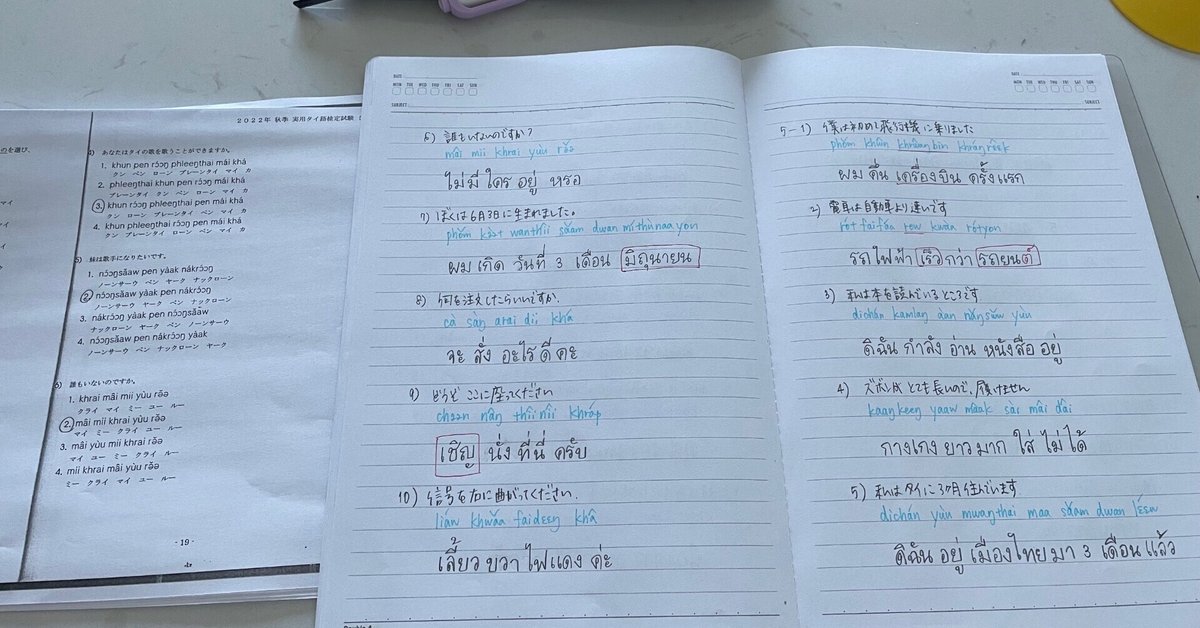 2022年 秋季 実用タイ語検定試験
のを選び、
4) あなたはタイの歌を歌うことができますか。
1. khun pen rɔ́ɔŋ phleeŋthai mái khá
クン ペン ローン プレーンタイ マイ カ
2. phleeŋthai khun pen rɔ́ɔŋ mái khá
プレーンタイ クン ペン ローン マイ カ
3. khun rɔ́ɔŋ phleeŋthai pen mái khá
クン ローン プレーンタイ ペン マイ カ
4. khun phleeŋthai rɔ́ɔŋ pen mái khá
クン プレーンタイ ローン ペン マイ カ
5) 妹は歌手になりたいです。
1. nɔ́ɔŋsǎaw pen yàak nákrɔ́ɔŋ
ノーンサーウ ペン ヤーク ナックローン
2. nɔ́ɔŋsǎaw yàak pen nákrɔ́ɔŋ
ノーンサーウ ヤーク ペン ナックローン
3. nákrɔ́ɔŋ yàak pen nɔ́ɔŋsǎaw
ナックローン ヤーク ペン ノーンサーウ
4. nɔ́ɔŋsǎaw pen nákrɔ́ɔŋ yàak
ノーンサーウ ペン ナックローン ヤーク
6) 誰もいないのですか。
1. khrai mâi mii yùu rə̌ə
クライ マイ ミー ユー ルー
2. mâi mii khrai yùu rə̌ə
マイ ミー クライ ユー ルー
3. mâi yùu mii khrai rə̌ə
マイ ユー ミー クライ ルー
4. mii khrai mâi yùu rə̌ə
ミー クライ マイ ユー ルー
- 19 -
DATE
MON TUE WED THU FRI SAT SUN
SUBJECT
6) 誰もいないのですか?
mâi mii khrai yùu rə̌ə
ไม่ มี ใคร อยู่ หรอ
7) ぼくは6月3日に生まれました。
phǒm kə̀ət wanthîi sǎam dwan míthùnaayon
ผม เกิด วันที่ 3 เดือน มิถุนายน
8) 何を注文したらいいですか.
cà sàŋ arai dii khá
จะ สั่ง อะไร ดี คะ
9) どうぞ ここに座ってください
chəən nâŋ thîinîi khráp
เชิญ นั่ง ที่ นี่ ครับ
10) 信号を右に曲がってください.
líáw khwǎa faideeŋ khâ
เลี้ยว ขวา ไฟแดง ค่ะ
DATE
MON TUE WED THU FRI SAT SUN
SUBJECT
5-1) 僕は初めて飛行機に乗りました
phǒm khûn khrûaŋbin khráŋrêek
ผม คื่น เครื่องบิน ครั้งแรก
2) 電車は自動車より速いです
rót faifáa rew kwàa rótyon
รถไฟฟ้า เร็ว กว่า รถยนต์
3) 私は本を読んでいるところです
dichán kamlaŋ àan nǎŋsǔw yùu
ดิฉัน กำลัง อ่าน หนังสือ อยู่
4) ズボンはとても長いので、履けません
kaaŋkeeŋ yaaw mâak sài mâi dâi
กางเกง ยาว มาก ใส่ ไม่ ได้
5) 私はタイに3ヶ月住んでいます
dichán yùu mwaŋthai maa sǎam dwan lɛ́ɛw
ดิฉัน อยู่ เมืองไทย มา 3 เดือน แล้ว